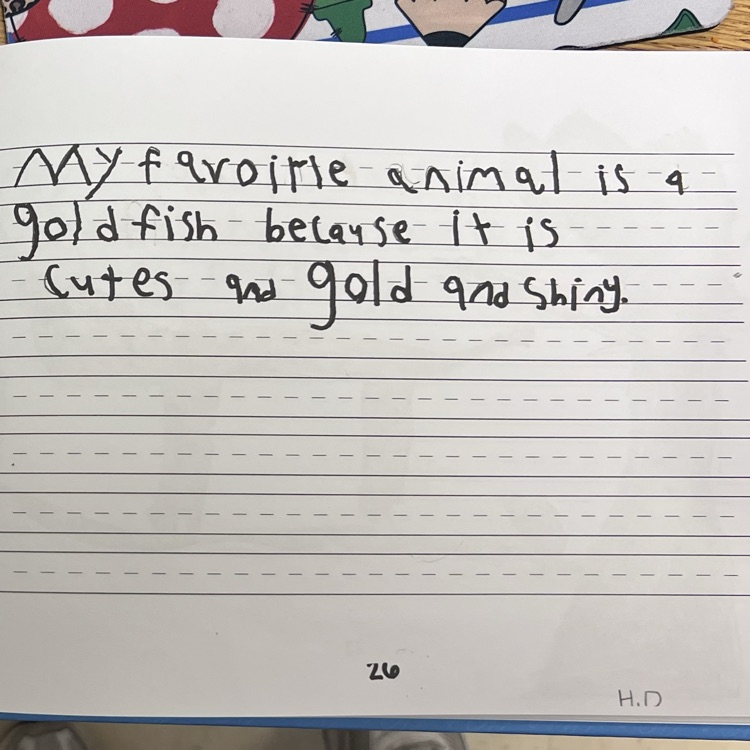 My favoirle animal is a
gold fish because it is
cutes and gold and shiny.
26
H.D